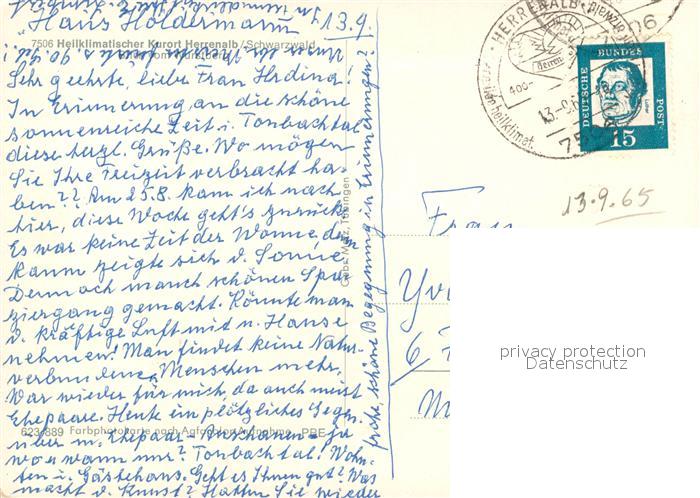 "Haus Höldermann
13.9.
7506 Heilklimatischer Kurort Herrenalb/Schwarzwald
Sehr geehrte, liebe Frau Hrdina!
In Erinnerung an die schöne
sonnenreiche Zeit i. Tonbachtal
diese herzl. Grüße. Wo mögen
Sie Ihre Freizeit verbracht ha-
ben?? Am 25.8. kam ich nach
hier, diese Woche geht's zurück.
Es war keine Zeit der Wonne, denn
kaum zeigte sich d. Sonne
Dennoch manch schönen Spa-
ziergang gemacht. Könnte man
d. kräftige Luft mit n. Hause
nehmen! Man findet keine Natur-
verbundene Menschen mehr,
War wieder für mich, da auch meist
Ehepaare. Heute ein plötzliches Gegen-
über m. Ehepaar
623/889 Farbphotokarte nach Agfacolor-Aufnahme PRE
wo u wann nur? Tonbachtal! Wohn-
ten i. Gästehaus. Geht es Ihnen gut? Was
macht d. Kunst? Hatten Sie wieder
frohe, schöne Begegnung in Erinnerungen?
Gebr. Metz, Tübingen
HERRENALB
7506
13.-9.
DEUTSCHE
BUNDES
POST
Luther
15
13.9.65
Frau
Yv
6
privacy protection
Datenschutz